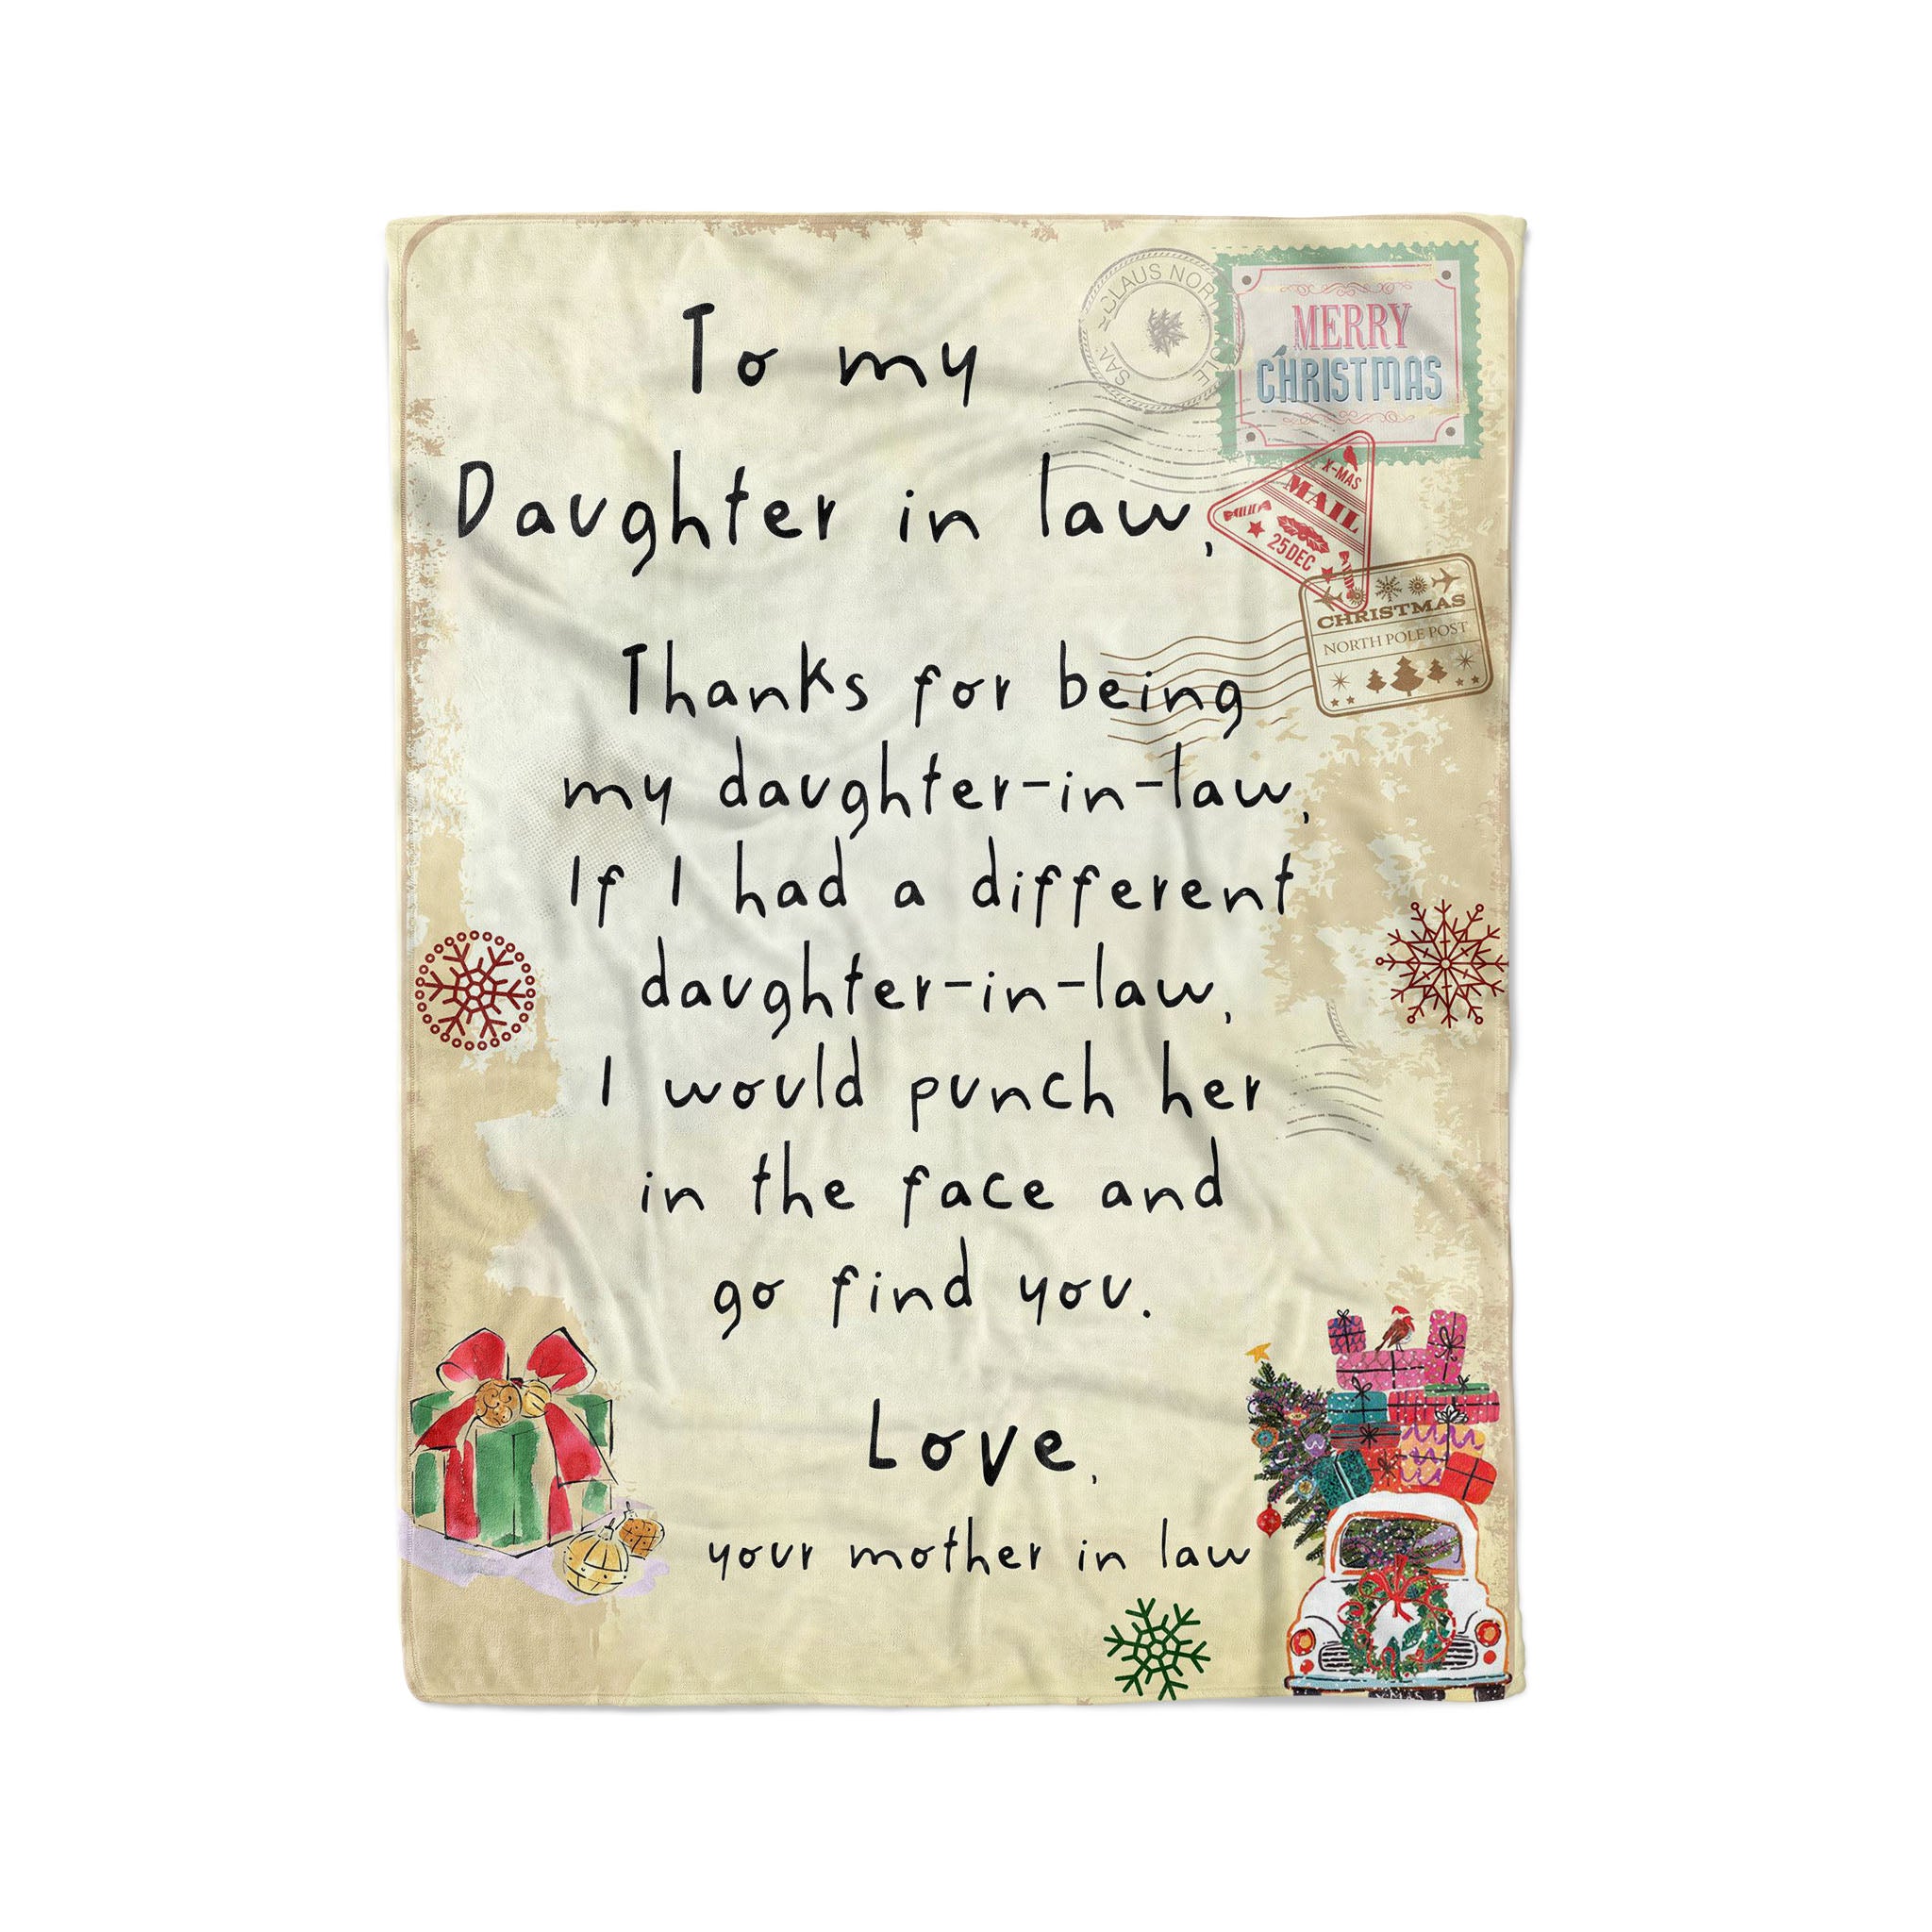 SAN CLAUS NORT OLE
MERRY
CHRISTMAS
To my
Daughter in law,
X-MAS
MAIL
25DEC
CHRISTMAS
NORTH POLE POST
Thanks for being
my daughter-in-law,
If I had a different
daughter-in-law,
I would punch her
in the face and
go find you.
Love,
your mother in law
X-MAS